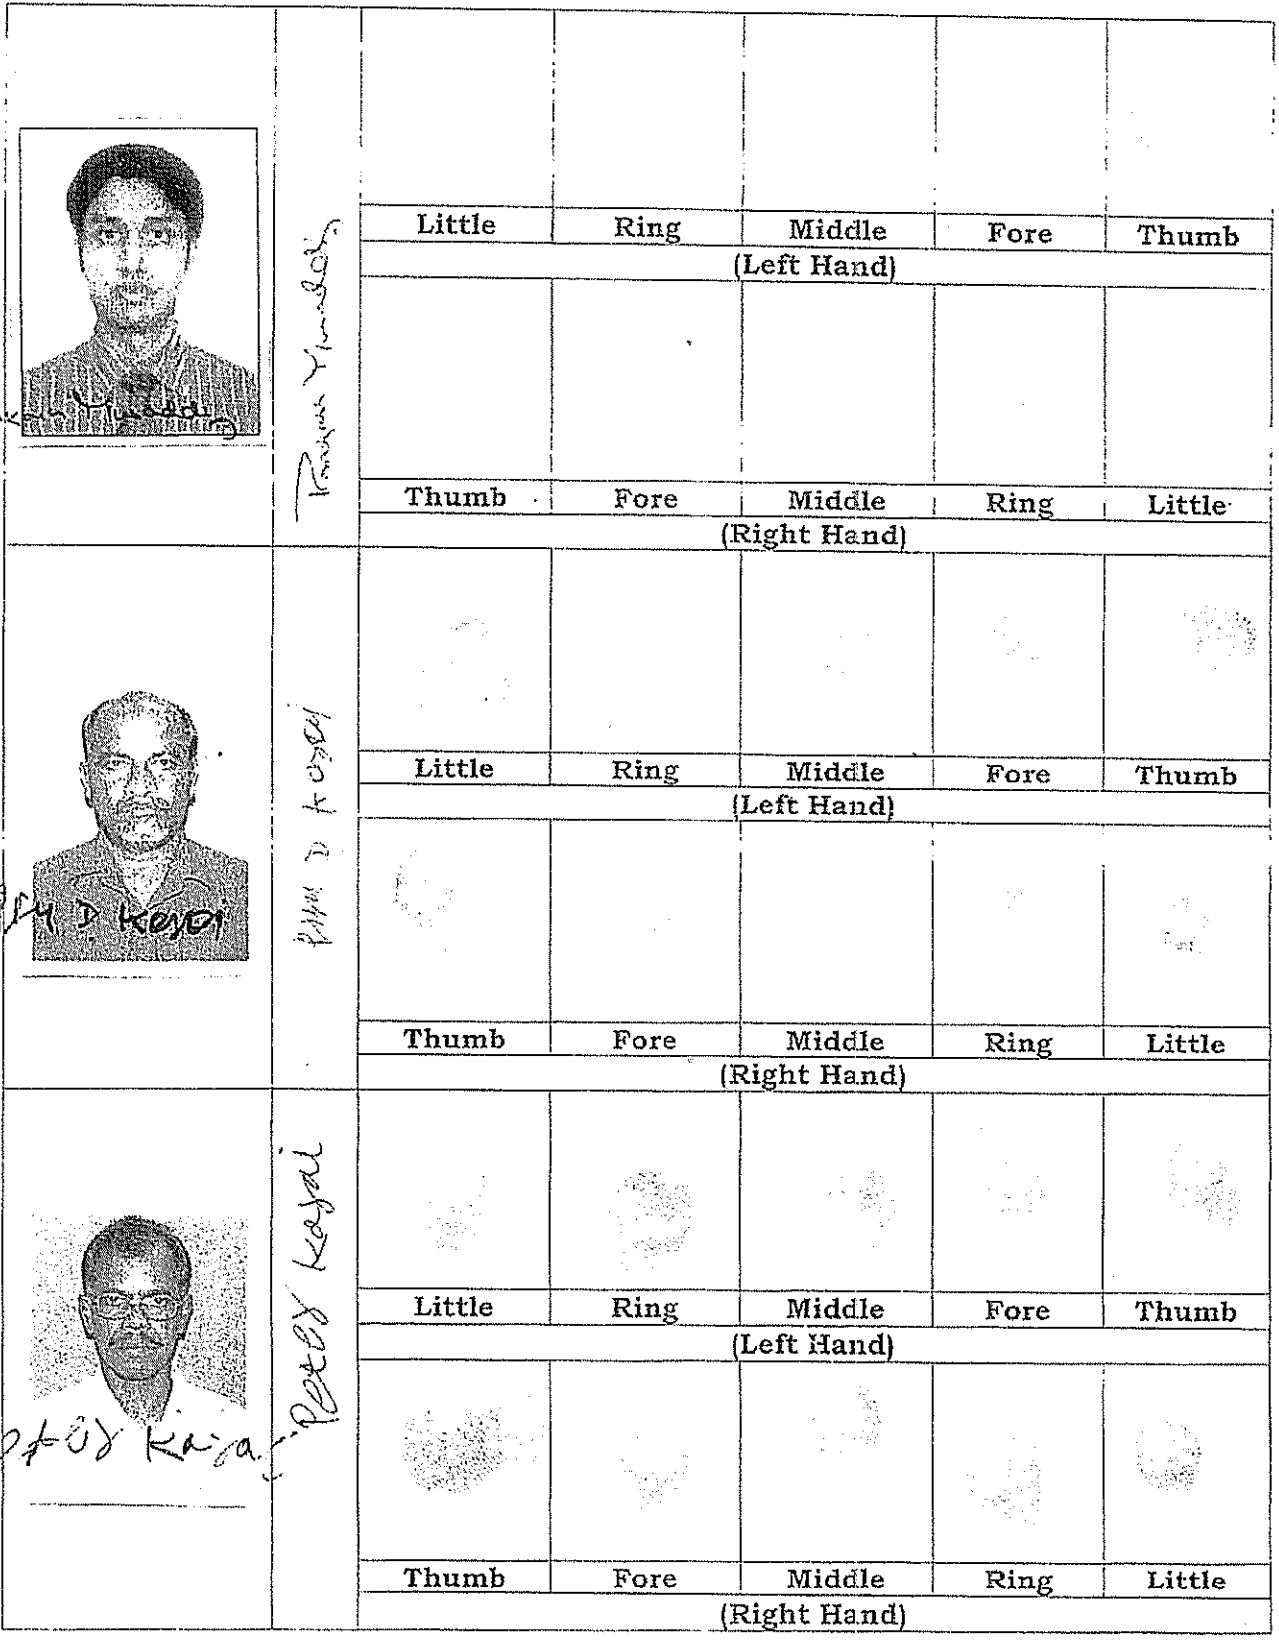 Little Ring Middle Fore Thumb
(Left Hand)
Thumb Fore Middle Ring Little
(Right Hand)
Little Ring Middle Fore Thumb
(Left Hand)
D
D
Thumb Fore Middle Ring Little
(Right Hand)
Little Ring Middle Fore Thumb
(Left Hand)
Thumb Fore Middle Ring Little
(Right Hand)